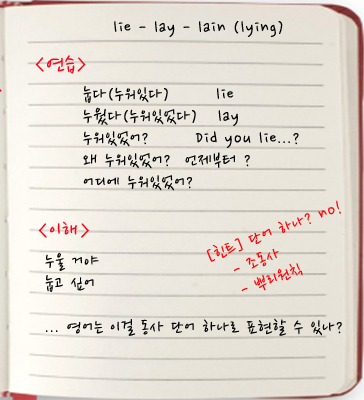 lie - lay - lain (lying)
<연습>
눕다(누워있다) lie
누웠다(누워있었다) lay
누워있었어? Did you lie...?
왜 누워있었어? 언제부터 ?
어디에 누워있었어?
<이해>
[힌트] 단어 하나? no!
- 조동사
- 뿌리원칙
누울 거야
눕고 싶어
... 영어는 이걸 동사 단어 하나로 표현할 수 있나?